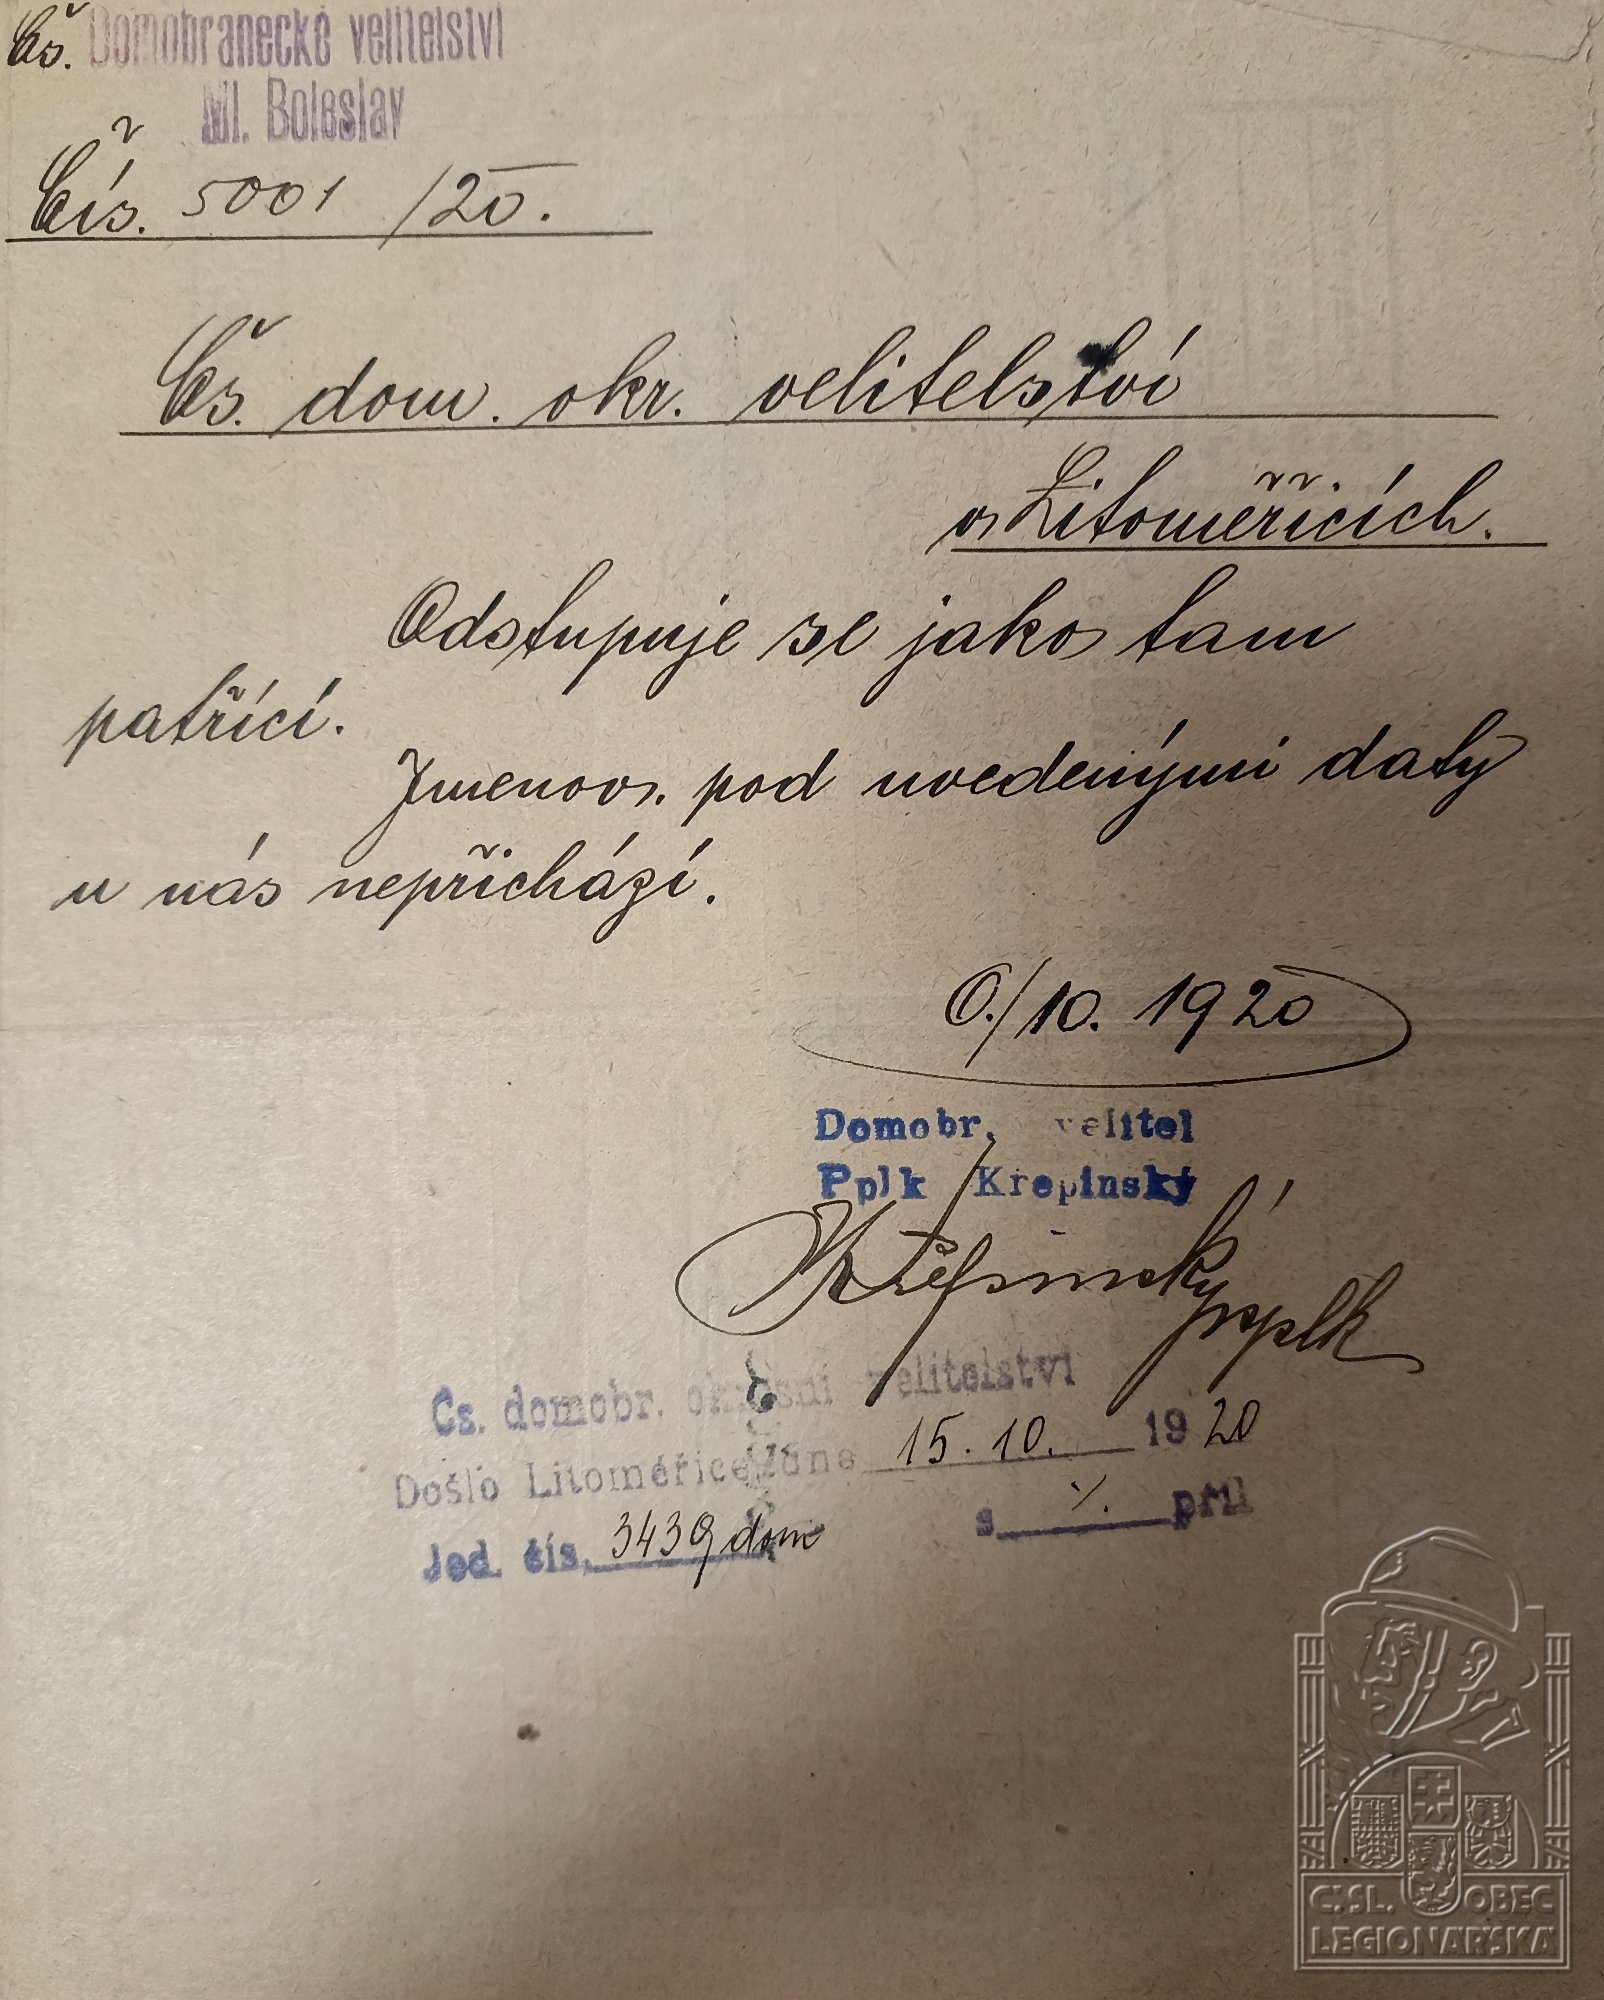 Čs. Domobranecké velitelství
Ml. Boleslav
Čís. 5001 /20.
Čs. dom. okr. velitelství
v Litoměřicích.
Odstupuje se jako tam
patřící.
Jmenov. pod uvedenými daty
u nás nepřichází.
O./10. 1920
Domobr. velitel
Pplk Krepinský
Křepinský pplk
Čs. domobr. okresní velitelství
Došlo Litoměřice dne 15. 10. 1920
Jed. čís. 3439 dom s /. příl
Č:SL. OBEC
LEGIONÁŘSKÁ